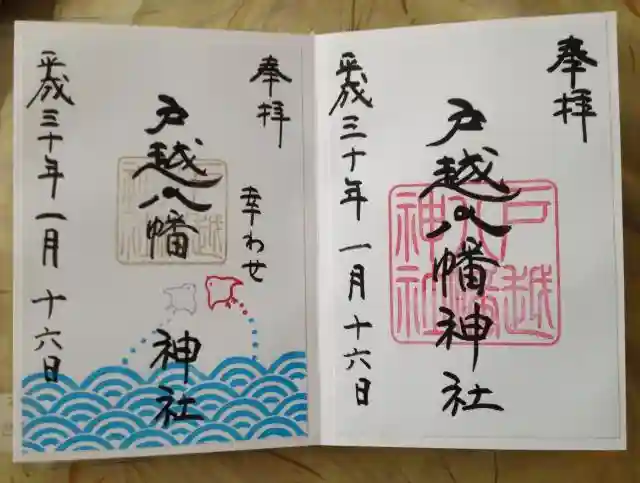 奉拝
戸越八幡神社
戸越八幡神社
平成三十年一月十六日
奉拝
幸わせ
戸越八幡
神社
戸越八幡神社
平成三十年一月十六日